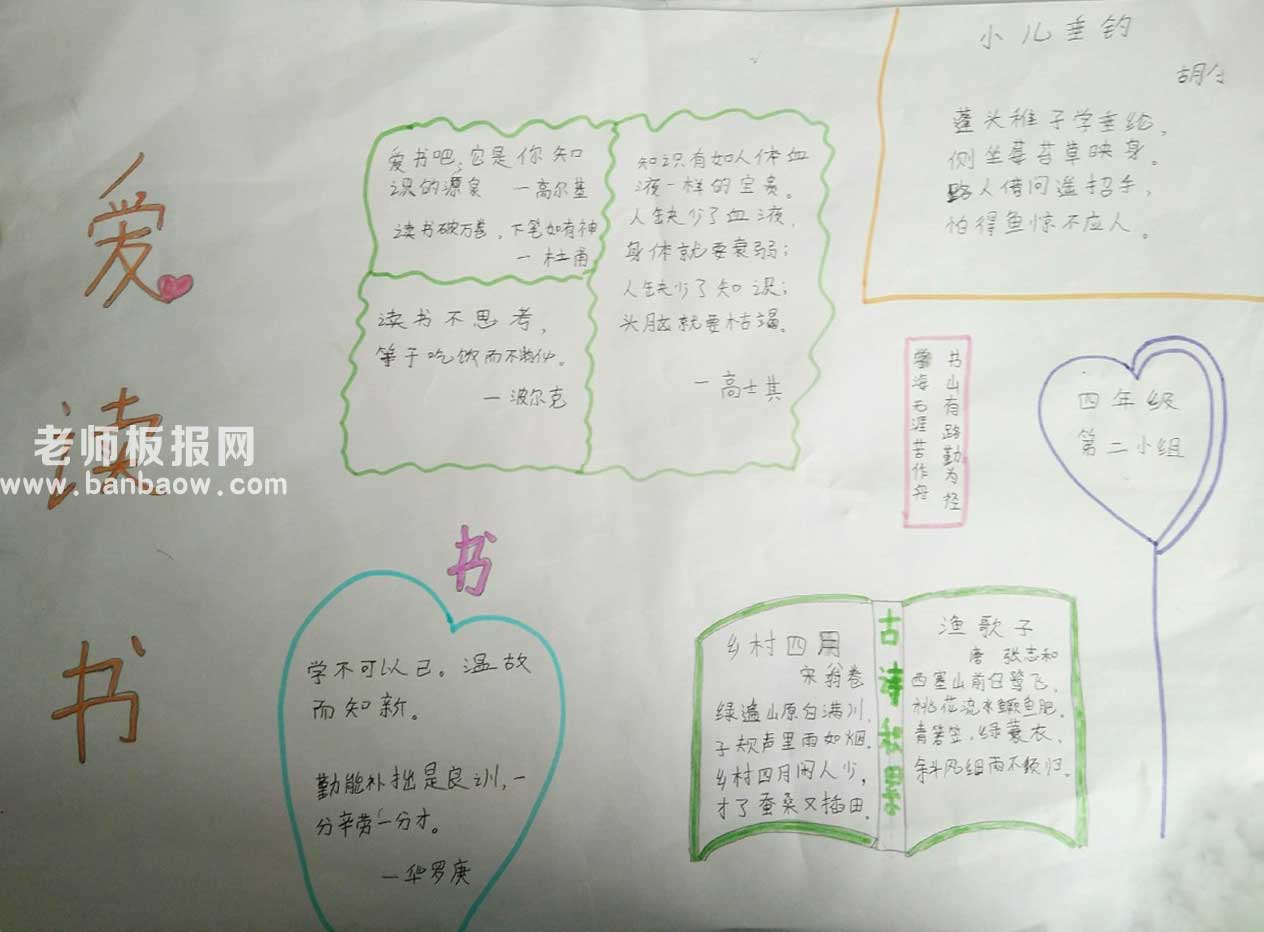 爱
读
书
老师板报网
www.banbaow.com
爱书吧,它是你知
识的源泉 一高尔基
读书破万卷,下笔如有神
一杜甫
读书不思考,
等于吃饮而不消化。
一波尔克
知识有如人体血
液一样的宝贵。
人缺少了血液,
身体就要衰弱;
人缺少了知识;
头脑就要枯竭。
一高士其
小儿垂钓
胡令
蓬头稚子学垂纶,
侧坐莓苔草映身。
路人借问遥招手,
怕得鱼惊不应人。
书山有路勤为径
学海无涯苦作舟
四年级
第二小组
书
学不可以已。温故
而知新。
勤能补拙是良训,一
分辛劳一分才。
一华罗庚
乡村四用
宋 翁卷
绿遍山原白满川,
子规声里雨如烟.
乡村四月闲人少,
才了蚕桑又插田.
古诗积累
渔歌子
唐 张志和
西塞山前白鹭飞,
桃花流水鳜鱼肥.
青箬笠,绿蓑衣,
斜风细雨不须归.